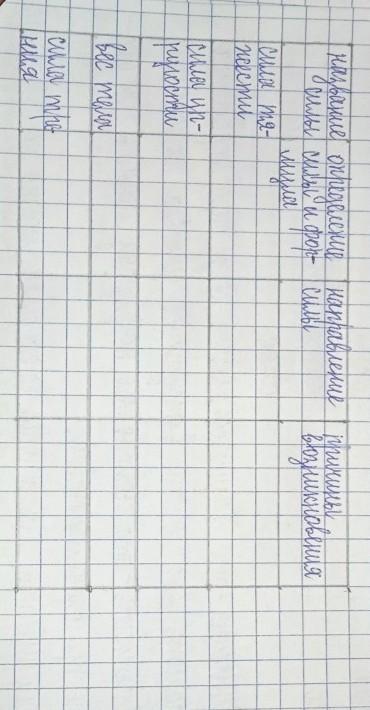 название
силы
определение
силы и фор-
мула
направление
силы
причины
возникновения
сила тя-
жести
сила уп-
ругости
вес тела
сила тре-
ния